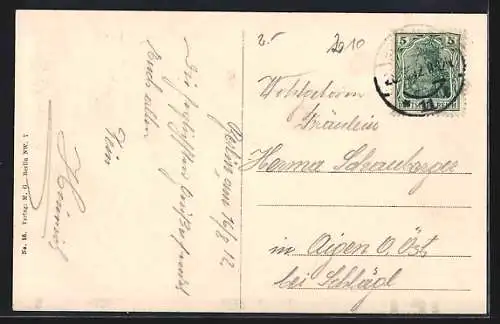 No. 18. Verlag: M. G.—Berlin NW. 7
Berlin, am 16/8 12
Die herzlichsten Grüße sendet
Euch allen
Heinrich
2010
5
5
Wohlgeboren
Fräulein
Herma Schauberger
in Aigen O. Öst.
bei Schlägl